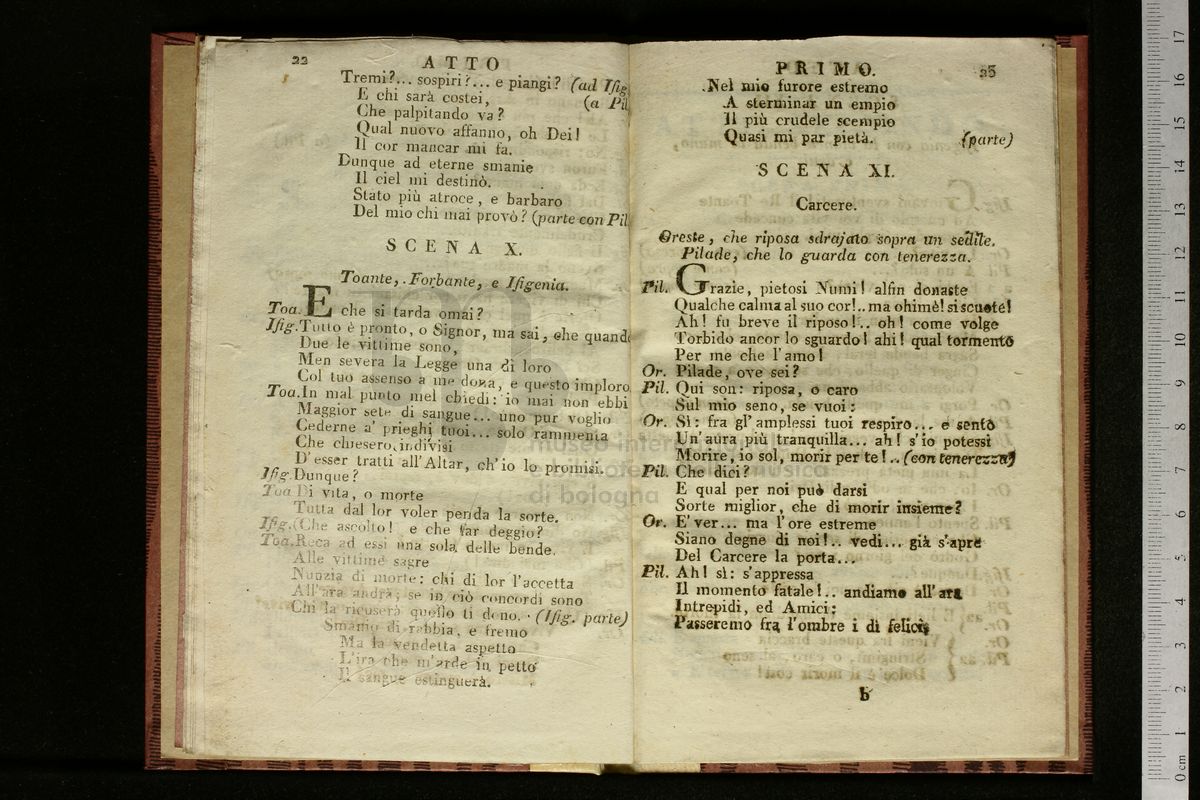 22 ATTO
Tremi?... sospiri?... e piangi? (ad Isig
E chi sarà costei, (a Pil
Che palpitando va?
Qual nuovo affanno, oh Dei!
Il cor mancar mi fa.
Dunque ad eterne smanie
Il ciel mi destinò.
Stato più atroce, e barbaro
Del mio chi mai provò? (parte con Pil
SCENA X.
Toante, Forbante, e Isigenia.
Toa. E che si tarda omai?
Isig. Tutto è pronto, o Signor, ma sai, che quand
Due le vittime sono,
Men severa la Legge una di loro
Col tuo assenso a me dona, e questo imploro
Toa. In mal punto mel chiedi: io mai non ebbi
Maggior sete di sangue... uno pur voglio
Cederne a' prieghi tuoi... solo rammenta
Che chiesero indivisi
D'esser tratti all'Altar, ch'io lo promisi.
Isig. Dunque?
Toa Di vita, o morte
Tutta dal lor voler penda la sorte.
Isig. (Che ascolto! e che far deggio?
Toa. Reca ad essi una sola delle bende.
Alle vittime sagre
Nunzia di morte: chi di lor l'accetta
All'ara andrà; se in ciò concordi sono
Chi la ricuserà quello ti dono. (Isig. parte)
Smanio di rabbia, e fremo
Ma la vendetta aspetto
L'ira che m'arde in petto
Il sangue estinguerà.
PRIMO. 25
Nel mio furore estremo
A sterminar un empio
Il più crudele scempio
Quasi mi par pietà. (parte)
SCENA XI.
Carcere.
Oreste, che riposa sdrajato sopra un sedile.
Pilade, che lo guarda con tenerezza.
Pil. Grazie, pietosi Numi! alfin donaste
Qualche calma al suo cor!.. ma ohimè! si scuote!
Ah! fu breve il riposo!.. oh! come volge
Torbido ancor lo sguardo! ahi! qual tormento
Per me che l'amo!
Or. Pilade, ove sei?
Pil. Qui son: riposa, o caro
Sul mio seno, se vuoi:
Or. Sì: fra gl'amplessi tuoi respiro... e sento
Un'aura più tranquilla... ah! s'io potessi
Morire, io sol, morir per te!.. (con tenerezza)
Pil. Che dici?
E qual per noi può darsi
Sorte miglior, che di morir insieme?
Or. E'ver... ma l'ore estreme
Siano degne di noi!.. vedi... già s'apre
Del Carcere la porta...
Pil. Ah! sì: s'appressa
Il momento fatale!.. andiamo all'ara
Intrepidi, ed Amici:
Passeremo fra l'ombre i dì felici
b
museo internazionale
e biblioteca della musica
di bologna
0 cm 1 2 3 4 5 6 7 8 9 10 11 12 13 14 15 16 17